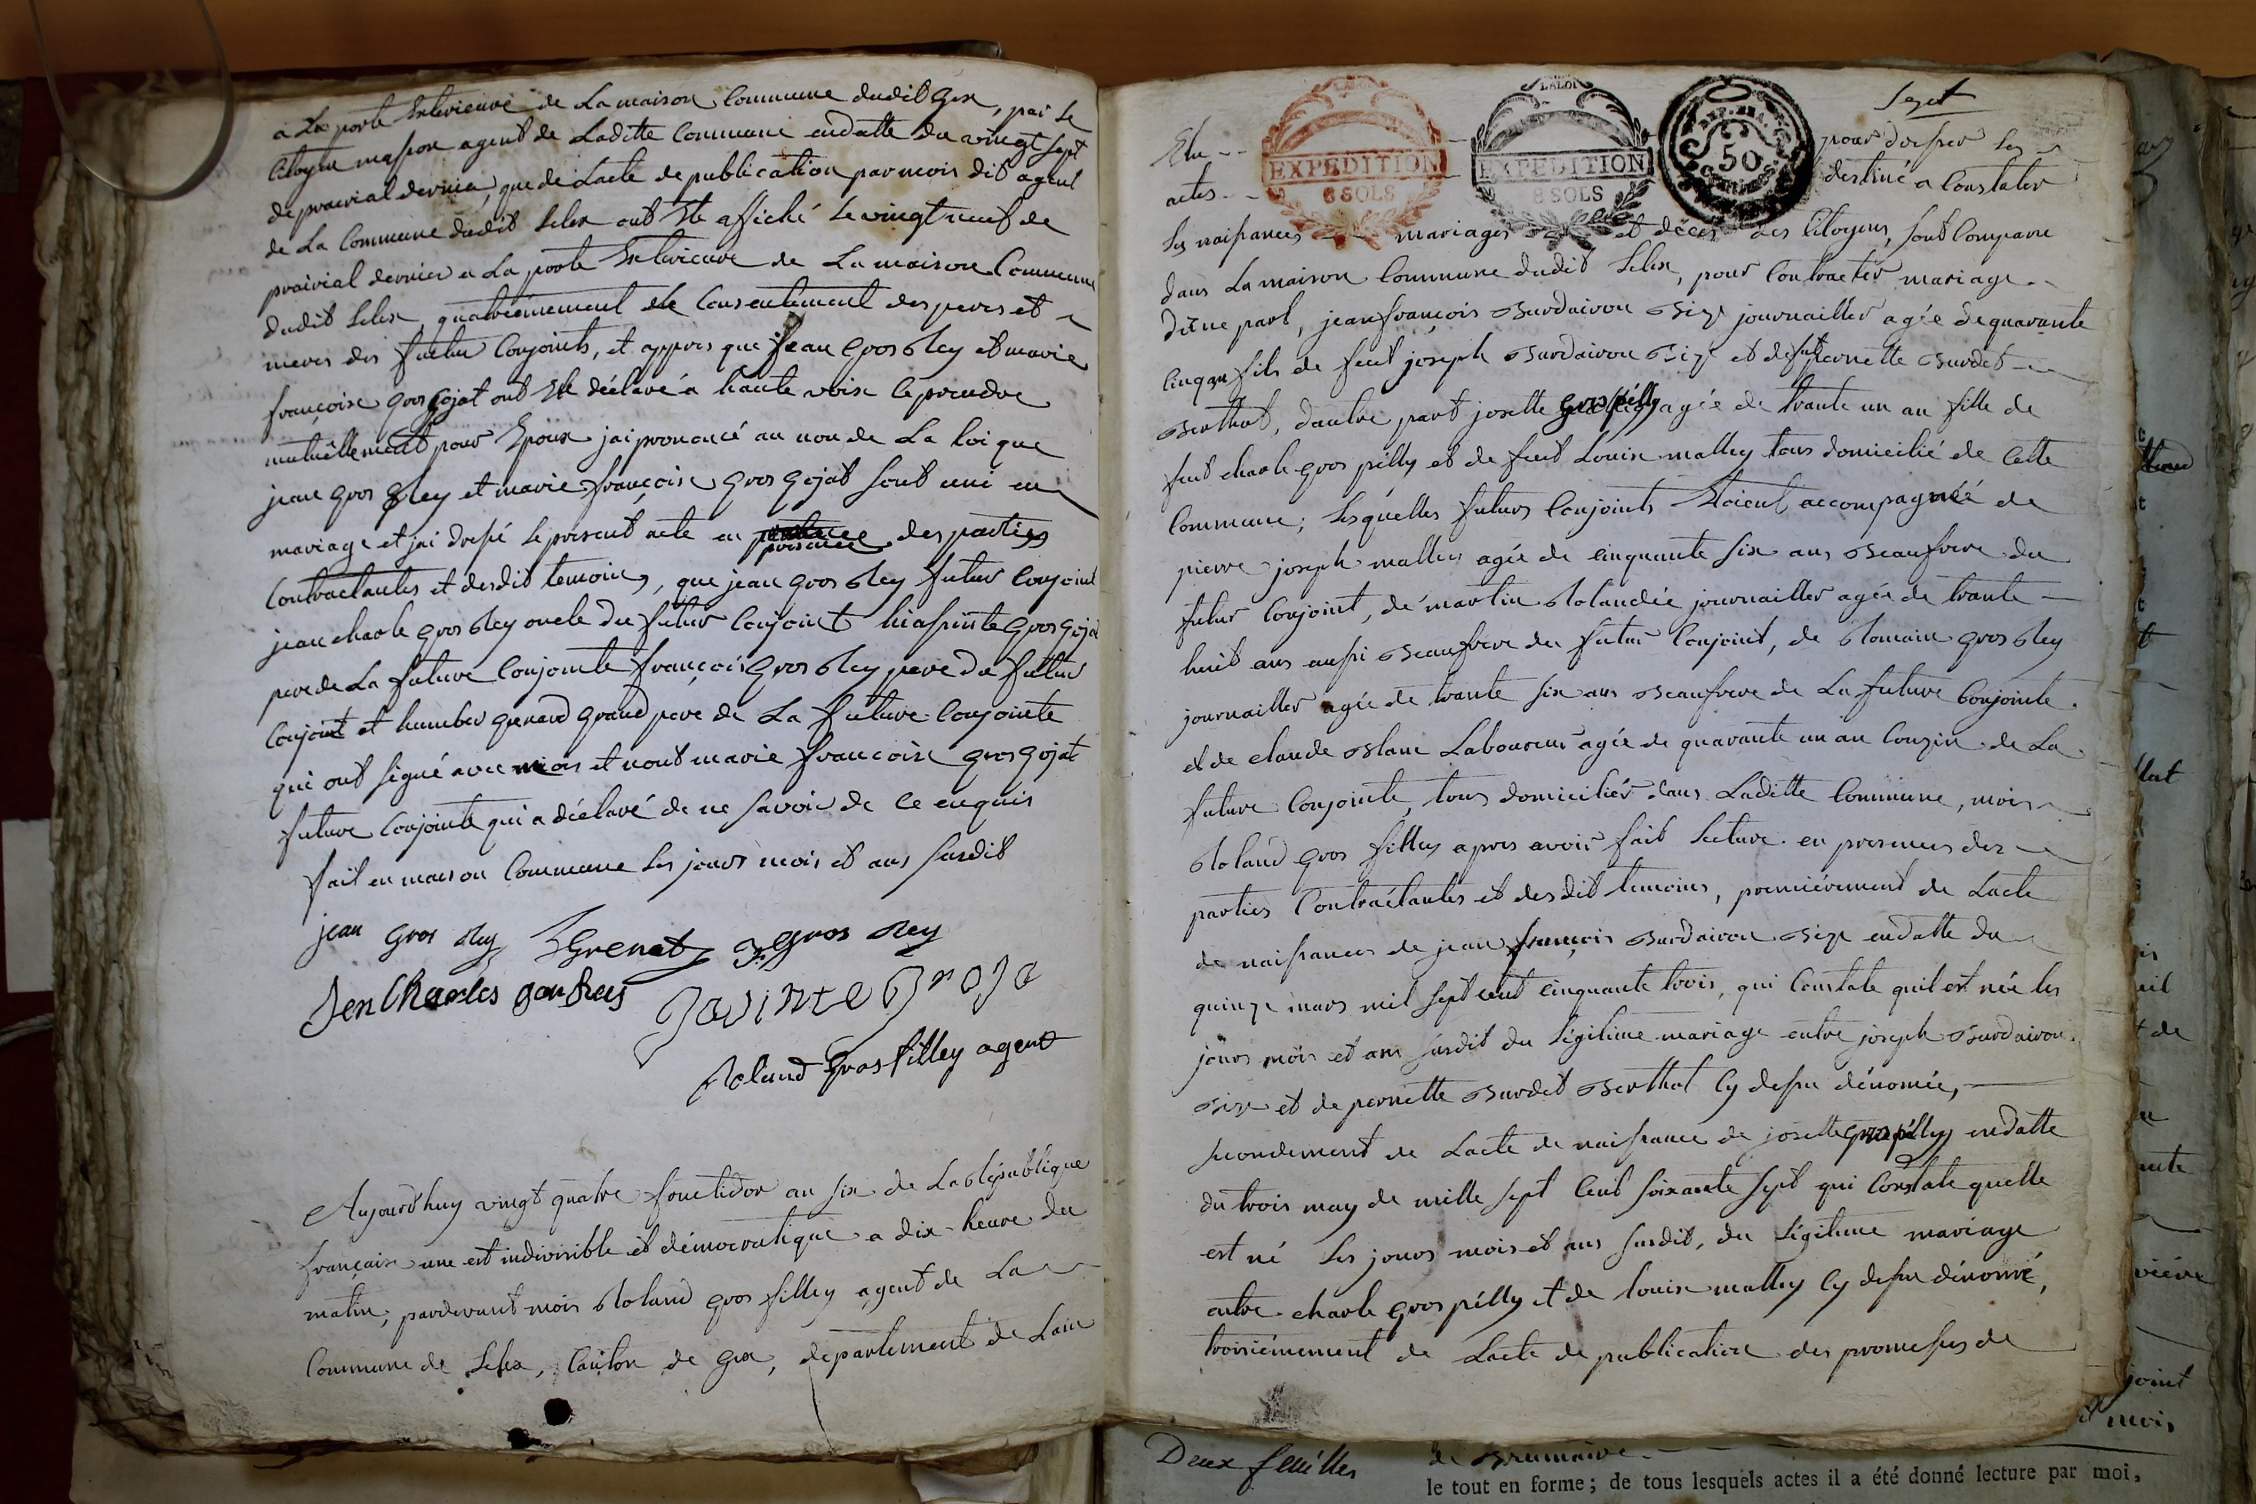 a La porte Exterieure de La maison Commune dudit Gex, par Le
Citoyen masson agent de Laditte Commune endatte du vingt sept
de prairial dernier, que de Lacte de publication par mois dit agent
de La Commune dudit Lelex ont Ete affiché Le vingt neuf de
prairial dernier a La porte Exterieure de La maison Commune
dudit Lelex quatriémement de Consentement des peres et
meres des futur Conjoints, et appres que jean gros Rey et marie
françoise gros gojat ont Ete déclaré a haute voix ce prendre
mutuellement pour Epoux jai prononcé au nom de La Loi que
jean gros Rey et marie françoise gros gojat sont uni en
mariage et jai dressé Le present acte en presence des parties
Contractantes et desdit temoins, que jean gros Rey futur Conjoint
jean charle gros Rey oncle du futur Conjoint hiassinte gros goja
pere de La future Conjointe françois gros Rey pere du futur
Conjoint et humber grenard grand pere de La future Conjointe
qui ont signé avec mois et nont marie francoise gros gojat
future Conjointe qui a déclaré de ne savoir de ce enquis
fait en maison Commune Les jours mois et ans susdit
jean gros Rey hGrenat gros Rey
Jen Charles gro Rey Jasinte Groja
Roland Gros filley agent
Aujourdhuy vingt quatre fructidor an six de La République
française une est indivisible et démocratique a dix heure du
matin, pardevant mois Roland gros filley agent de La
Commune de Lelex, Canton de Gex, departement de Lain
Sept
Elu pour dresser Les
actes destiné a Constater
Les naissances mariages et décés des Citoyens, sont Comparu
dans La maison Commune dudit Lelex, pour Contracter mariage
Dune part, jean françois Burdairon Bize journailler agée de quarante
Cinq an fils de feut joseph Burdairon Bize et de fut pernette Burdet
Berthot, dautre part josette grospilly agée de trante un an fille de
feut charle gros pilly et de feut Louise malley tous domicilié de Cette
Commune; Lesquelles futurs Conjoints Etoient accompagnéé de
pierre joseph malley agée de cinquante six ans Beaufrere du
futur Conjoint, de martin Rolandée journailler agée de trante
huit ans aussi Beaufrere du futur Conjoint, de Romain gros Rey
journailler agée de trante six ans Beaufrere de La future Conjointe
et de claude Blanc Laboureur agée de quarante un an Couzin de La
future Conjointe, tous domiciliér dans Laditte Commune, mois
Roland gros filley apres avoir fait Lecture en presences des
parties Contractantes et desdit temoins, premiérement de Lacte
de naissances de jean françois Burdairon Bize endatte du
quinze mars mil sept cent cinquante trois, qui Constate quil est née les
jours mois et ans susdit du Légitime mariage entre joseph Burdairon
Bize et de pernette Burdet Berthot Cy dessu dénomée,
secondement de Lacte de naissance de josette grospilly endatte
du trois may de mille sept Cent soixante sept qui Constate quelle
est né Les jours mois et ans susdit, du Légitime mariage
entre charle gros pilly et de louise malley Cy dessu dénomé,
troisiémement de Lacte de publication des promesses de
LA LOI
EXPEDITION
8 SOLS
LA LOI
EXPEDITION
8 SOLS
REP. FRA.
50
CENTIMES
Deux feuilles
de Brumaire
le tout en forme; de tous lesquels actes il a été donné lecture par moi,
joint
mois